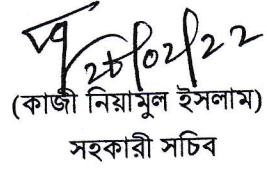 28/02/22
(কাজী নিয়ামুল ইসলাম)
সহকারী সচিব